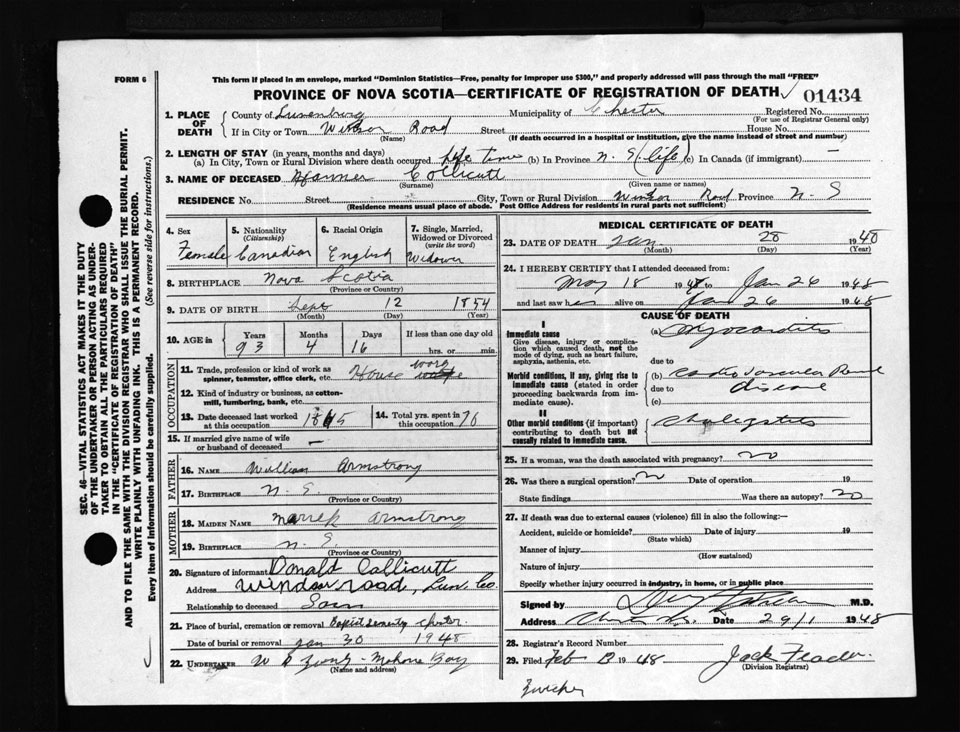 FORM 6
This form if placed in an envelope, marked "Dominion Statistics—Free, penalty for improper use $300," and properly addressed will pass through the mail "FREE"
PROVINCE OF NOVA SCOTIA—CERTIFICATE OF REGISTRATION OF DEATH
01434
1. PLACE OF DEATH
County of Lunenburg Municipality of Chester Registered No.
(For use of Registrar General only)
If in City or Town Windsor Road Street House No.
(Name) (If death occurred in a hospital or institution, give the name instead of street and number)
2. LENGTH OF STAY (in years, months and days)
(a) In City, Town or Rural Division where death occurred life time (b) In Province N. S. (life) (c) In Canada (if immigrant) —
3. NAME OF DECEASED Collicutt
(Surname) (Given name or names)
RESIDENCE No. Street City, Town or Rural Division Windsor Road Province N S
(Residence means usual place of abode. Post Office Address for residents in rural parts not sufficient)
4. Sex Female
5. Nationality (Citizenship) Canadian
6. Racial Origin English
7. Single, Married, Widowed or Divorced (write the word) Widower
8. BIRTHPLACE Nova Scotia
(Province or Country)
9. DATE OF BIRTH Sept 12 1854
(Month) (Day) (Year)
10. AGE in Years 93 Months 4 Days 16 If less than one day old hrs. or min.
OCCUPATION
11. Trade, profession or kind of work as spinner, teamster, office clerk, etc. House work
12. Kind of industry or business, as cotton-mill, lumbering, bank, etc.
13. Date deceased last worked at this occupation
14. Total yrs. spent in this occupation 76
15. If married give name of wife or husband of deceased —
FATHER
16. NAME William Armstrong
17. BIRTHPLACE N. S.
(Province or Country)
MOTHER
18. MAIDEN NAME Armstrong
19. BIRTHPLACE N. S.
(Province or Country)
20. Signature of informant Donald Collicutt
Address Windsor road, Lun. Co.
Relationship to deceased Son
21. Place of burial, cremation or removal Baptist Chester
Date of burial or removal Jan 30 1948
22. UNDERTAKER Mahone Bay
(Name and address)
MEDICAL CERTIFICATE OF DEATH
23. DATE OF DEATH Jan. 28 1948
(Month) (Day) (Year)
24. I HEREBY CERTIFY that I attended deceased from:
May 18 to Jan 26 1948
and last saw her alive on Jan 26 1948
CAUSE OF DEATH
I
Immediate cause
Give disease, injury or complication which caused death, not the mode of dying, such as heart failure, asphyxia, asthenia, etc.
(a) Myocarditis
due to
Morbid conditions, if any, giving rise to immediate cause (stated in order proceeding backwards from immediate cause).
(b) Cardio Vascular Renal
due to disease
(c)
II
Other morbid conditions (if important) contributing to death but not causally related to immediate cause.
25. If a woman, was the death associated with pregnancy? No
26. Was there a surgical operation? No Date of operation 19
State findings Was there an autopsy? No
27. If death was due to external causes (violence) fill in also the following:—
Accident, suicide or homicide? Date of injury 19
(State which)
Manner of injury
(How sustained)
Nature of injury
Specify whether injury occurred in industry, in home, or in public place
Signed by M.D.
Address Chester N.S. Date 29/1 1948
28. Registrar's Record Number
29. Filed Feb 1948 Jack
(Division Registrar)
Zwicker
SEC. 46—VITAL STATISTICS ACT MAKES IT THE DUTY OF THE UNDERTAKER OR PERSON ACTING AS UNDERTAKER TO OBTAIN ALL THE PARTICULARS REQUIRED IN THE "CERTIFICATE OF REGISTRATION OF DEATH" AND TO FILE THE SAME WITH THE DIVISION REGISTRAR WHO SHALL ISSUE THE BURIAL PERMIT.
WRITE PLAINLY WITH UNFADING INK. THIS IS A PERMANENT RECORD.
Every item of information should be carefully supplied. (See reverse side for instructions.)